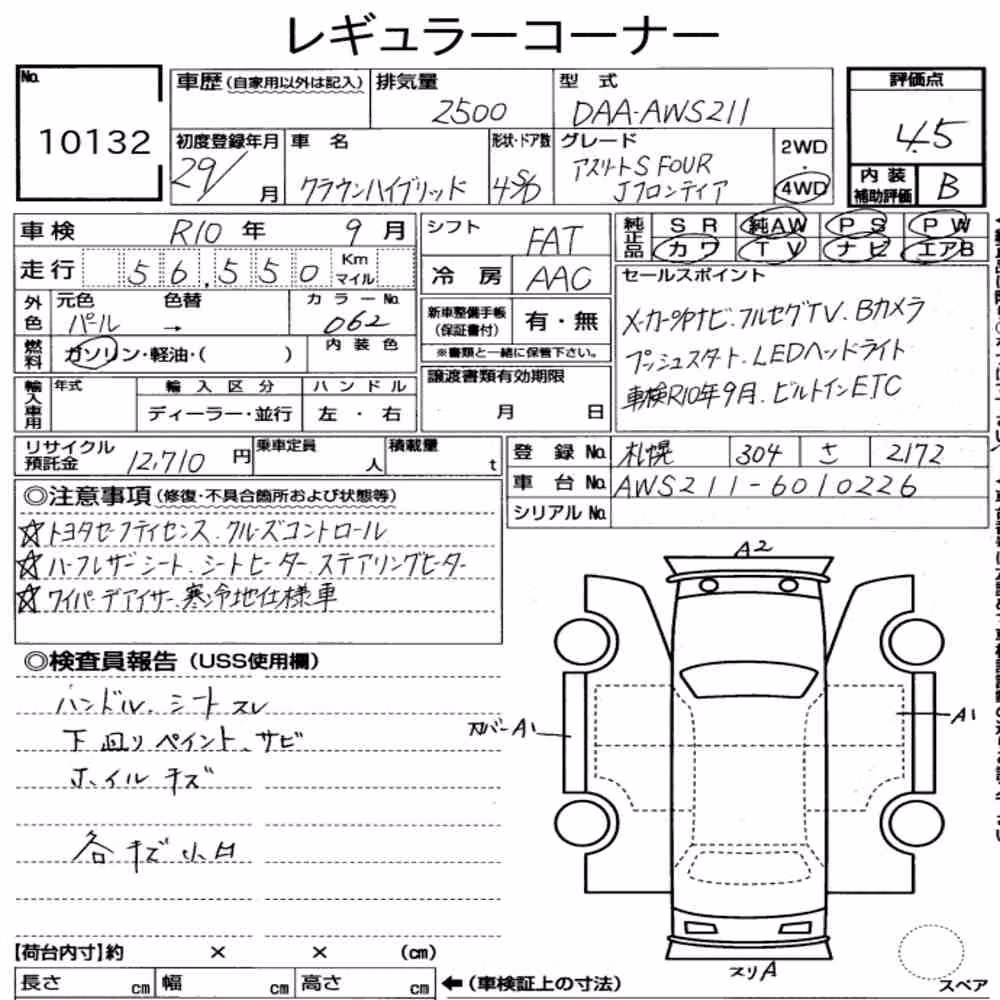 レギュラーコーナー
No. 10132
車歴(自家用以外は記入)
排気量 2500
型式 DAA-AWS211
評価点 4.5
初度登録年月 29/ 月
車名 クラウンハイブリッド
形状・ドア数 4 S/D
グレード アスリートS FOUR
Jフロンティア
2WD・4WD
内装補助評価 B
車検 R10年 9月
走行 56,550 Km マイル
外色 元色 パール 色替 → カラーNo. 062
燃料 ガソリン・軽油・( ) 内装色
輸入車用 年式 輸入区分 ディーラー・並行 ハンドル 左・右
シフト FAT
冷房 AAC
新車整備手帳(保証書付) 有・無
※書類と一緒に保管下さい。
譲渡書類有効期限
月 日
純正品 SR 純AW PS PW
カワ TV ナビ エアB
セールスポイント
メーカーOPナビ.フルセグTV.Bカメラ
プッシュスタート.LEDヘッドライト
車検R10年9月.ビルトインETC
リサイクル預託金 12,710円
乗車定員 人
積載量 t
登録No. 札幌 304 さ 2172
車台No. AWS211-6010226
シリアルNo.
◎注意事項(修復・不具合箇所および状態等)
☆トヨタセーフティセンス.クルーズコントロール
☆ハーフレザーシート.シートヒーター.ステアリングヒーター
☆ワイパーデアイサー.寒冷地仕様車
◎検査員報告(USS使用欄)
ハンドル.シートスレ
下回りペイント.サビ
ホイルキズ
各キズ小凹
A2
カバーA1
A1
スリA
スペア
【荷台内寸】約 × × (cm)
長さ cm 幅 cm 高さ cm ←(車検証上の寸法)